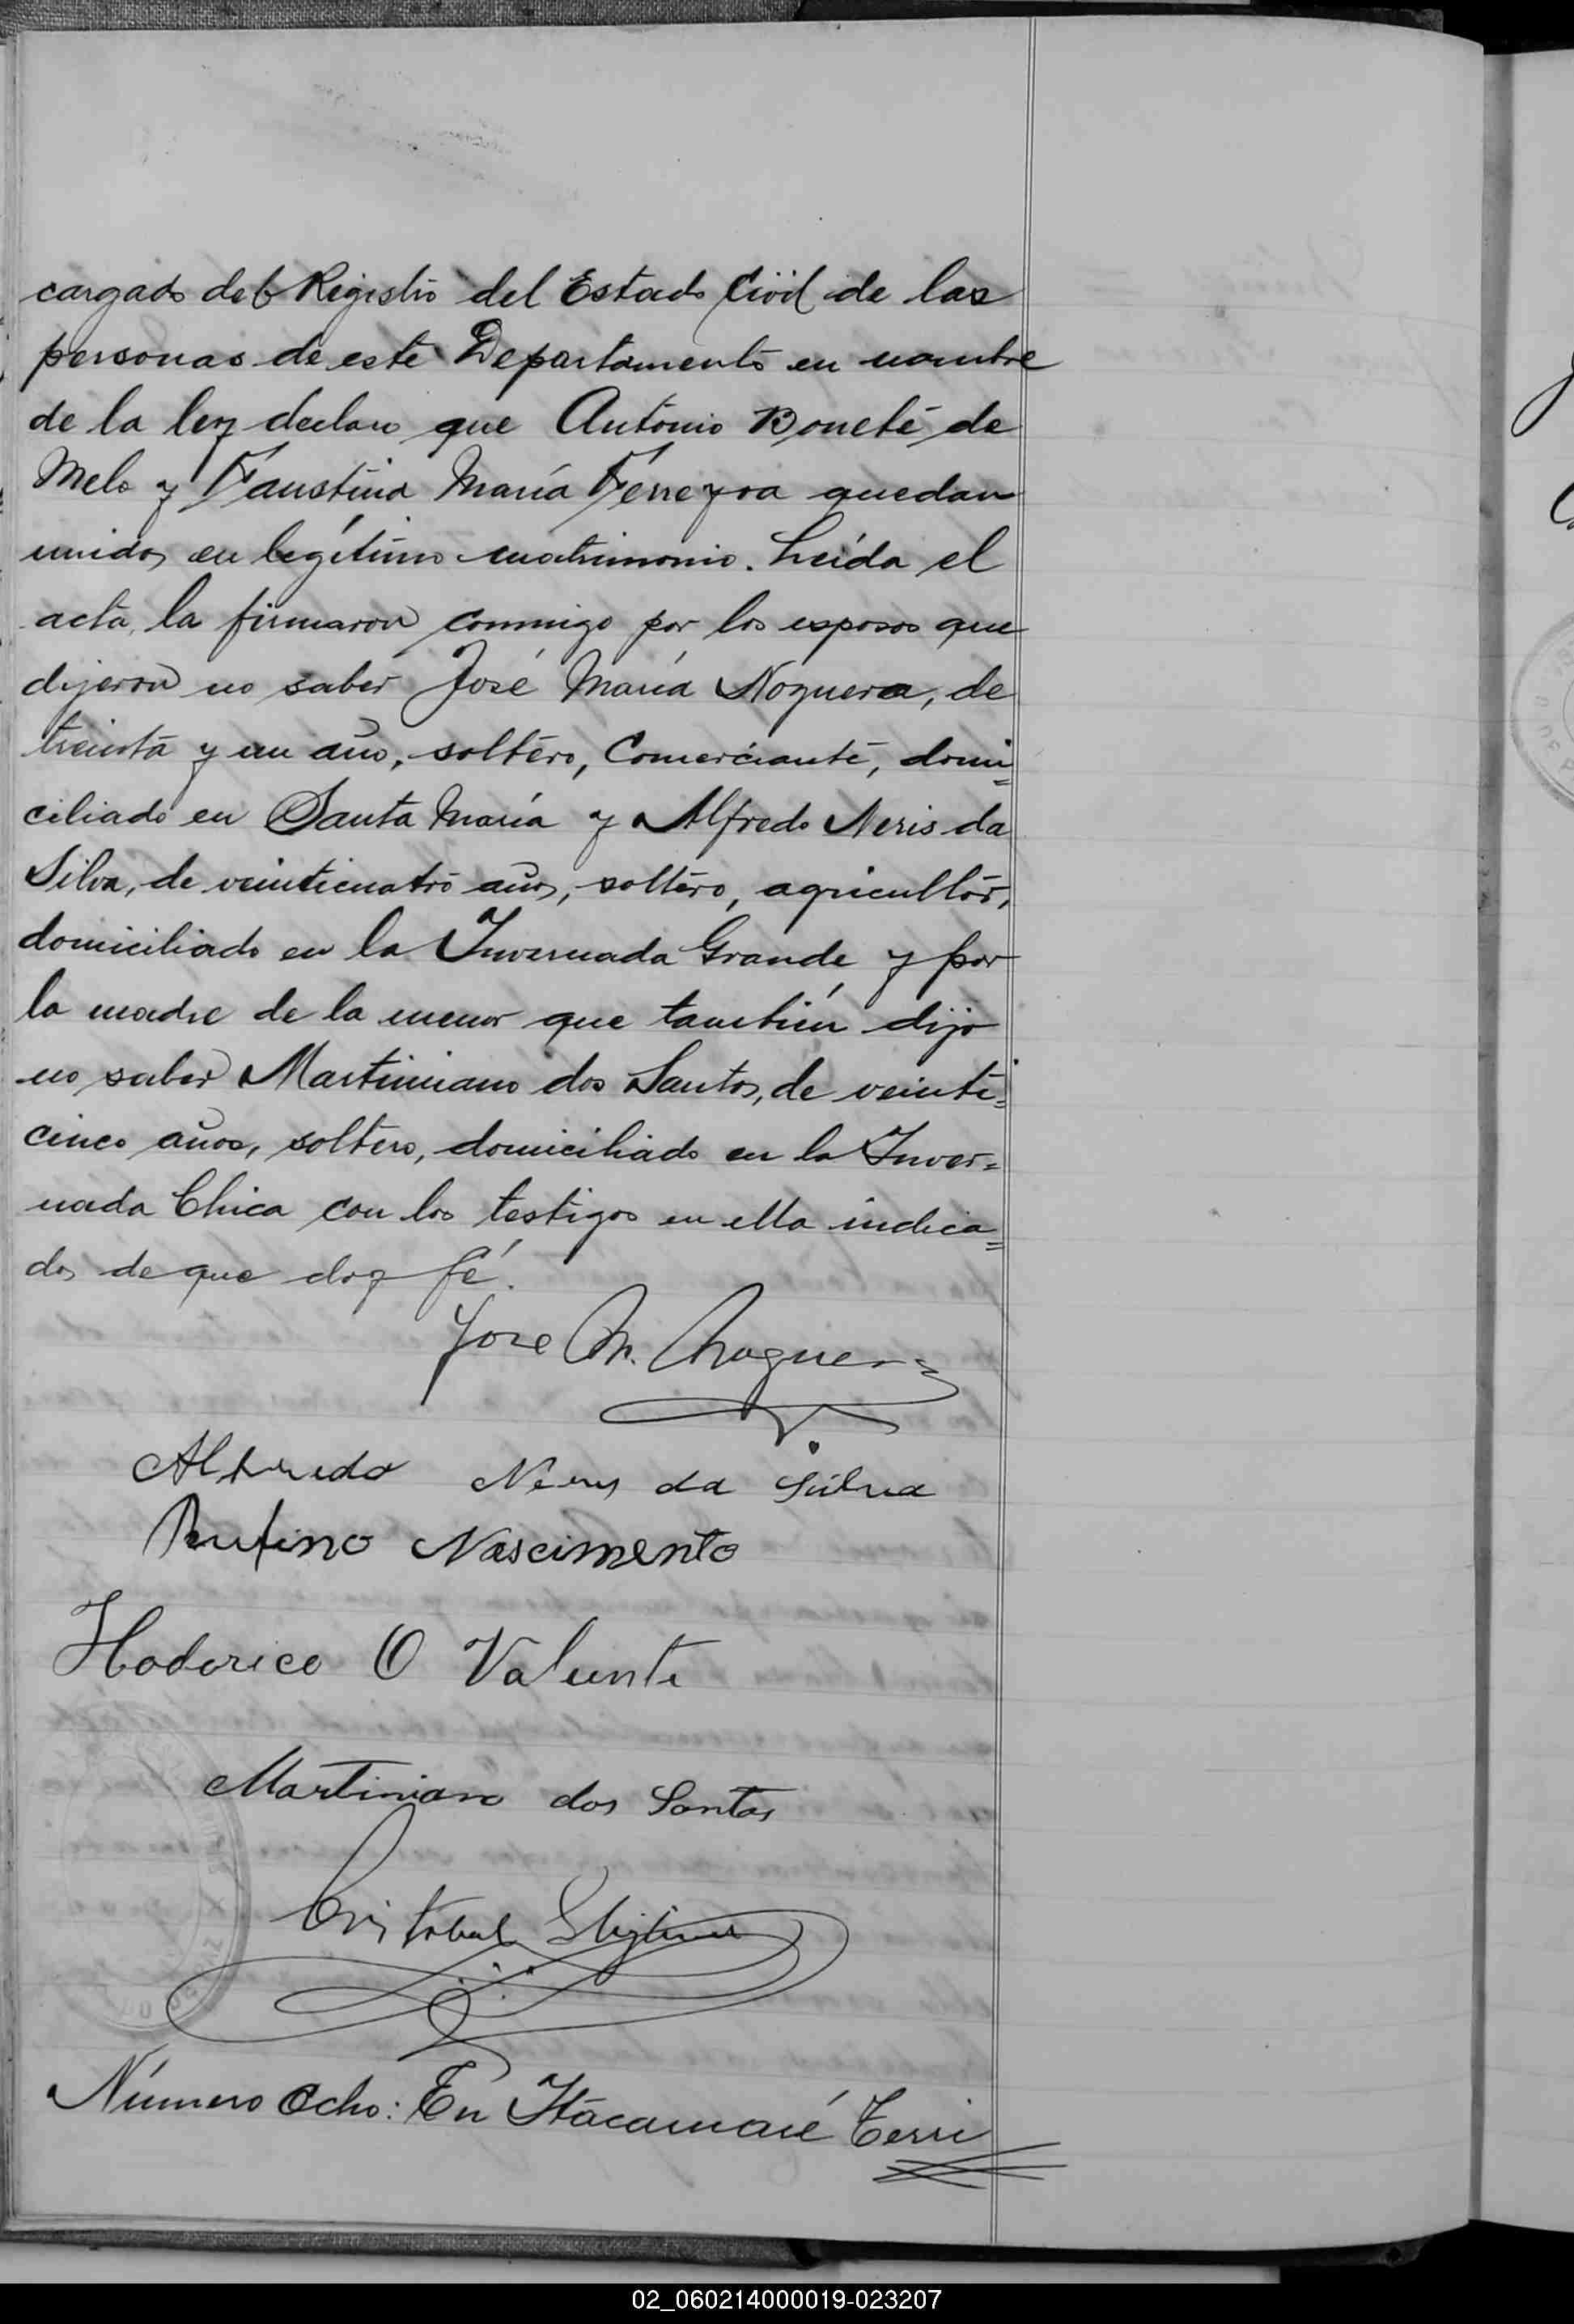 cargado del Registro del Estado Civil de las
personas de este Departamento en nombre
de la ley declaro que Antonio Boneté de
Melo y Faustina María Ferreyra quedan
unidos en legítimo matrimonio. Leída el
acta, la firmaron conmigo por los esposos que
dijeron no saber José María Noguera, de
treinta y un año, soltero, Comerciante, domi=
ciliado en Santa María y Alfredo Neris da
Silva, de veinticuatro años, soltero, agricultor,
domiciliado en la Invernada Grande y por
la madre de la menor que también dijo
no saber Martiniano dos Santos, de veinti=
cinco años, soltero, domiciliado en la Inver=
nada Chica con los testigos en ella indica=
dos de que doy fé.
Jose M. Noguera
Alfredo Nerys da Silva
Rufino Nascimento
Hoderico O Valente
Martiniano dos Santos
Cristobal
Número Ocho: En Itacaruaré Terri
02_060214000019-023207